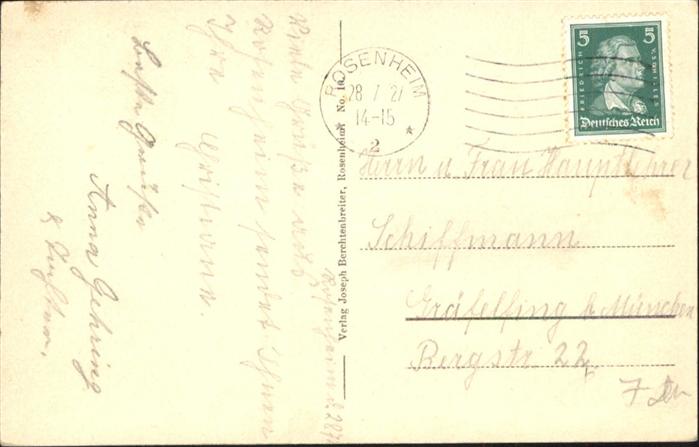 Rosenheim d. 28 7
Viele Grüße aus
Rosenheim sendet Ihnen
Ihre
Beste Grüße
Anna Gehring
&
Verlag Joseph Berchtenbreiter, Rosenheim No. 10
ROSENHEIM
28 7 27
14-15
* 2 *
5 5
FRIEDRICH V. SCHILLER
Deutsches Reich
Herrn u Frau Hauptlehrer
Schiffmann
Gräfelfing b. München
Bergstr. 22